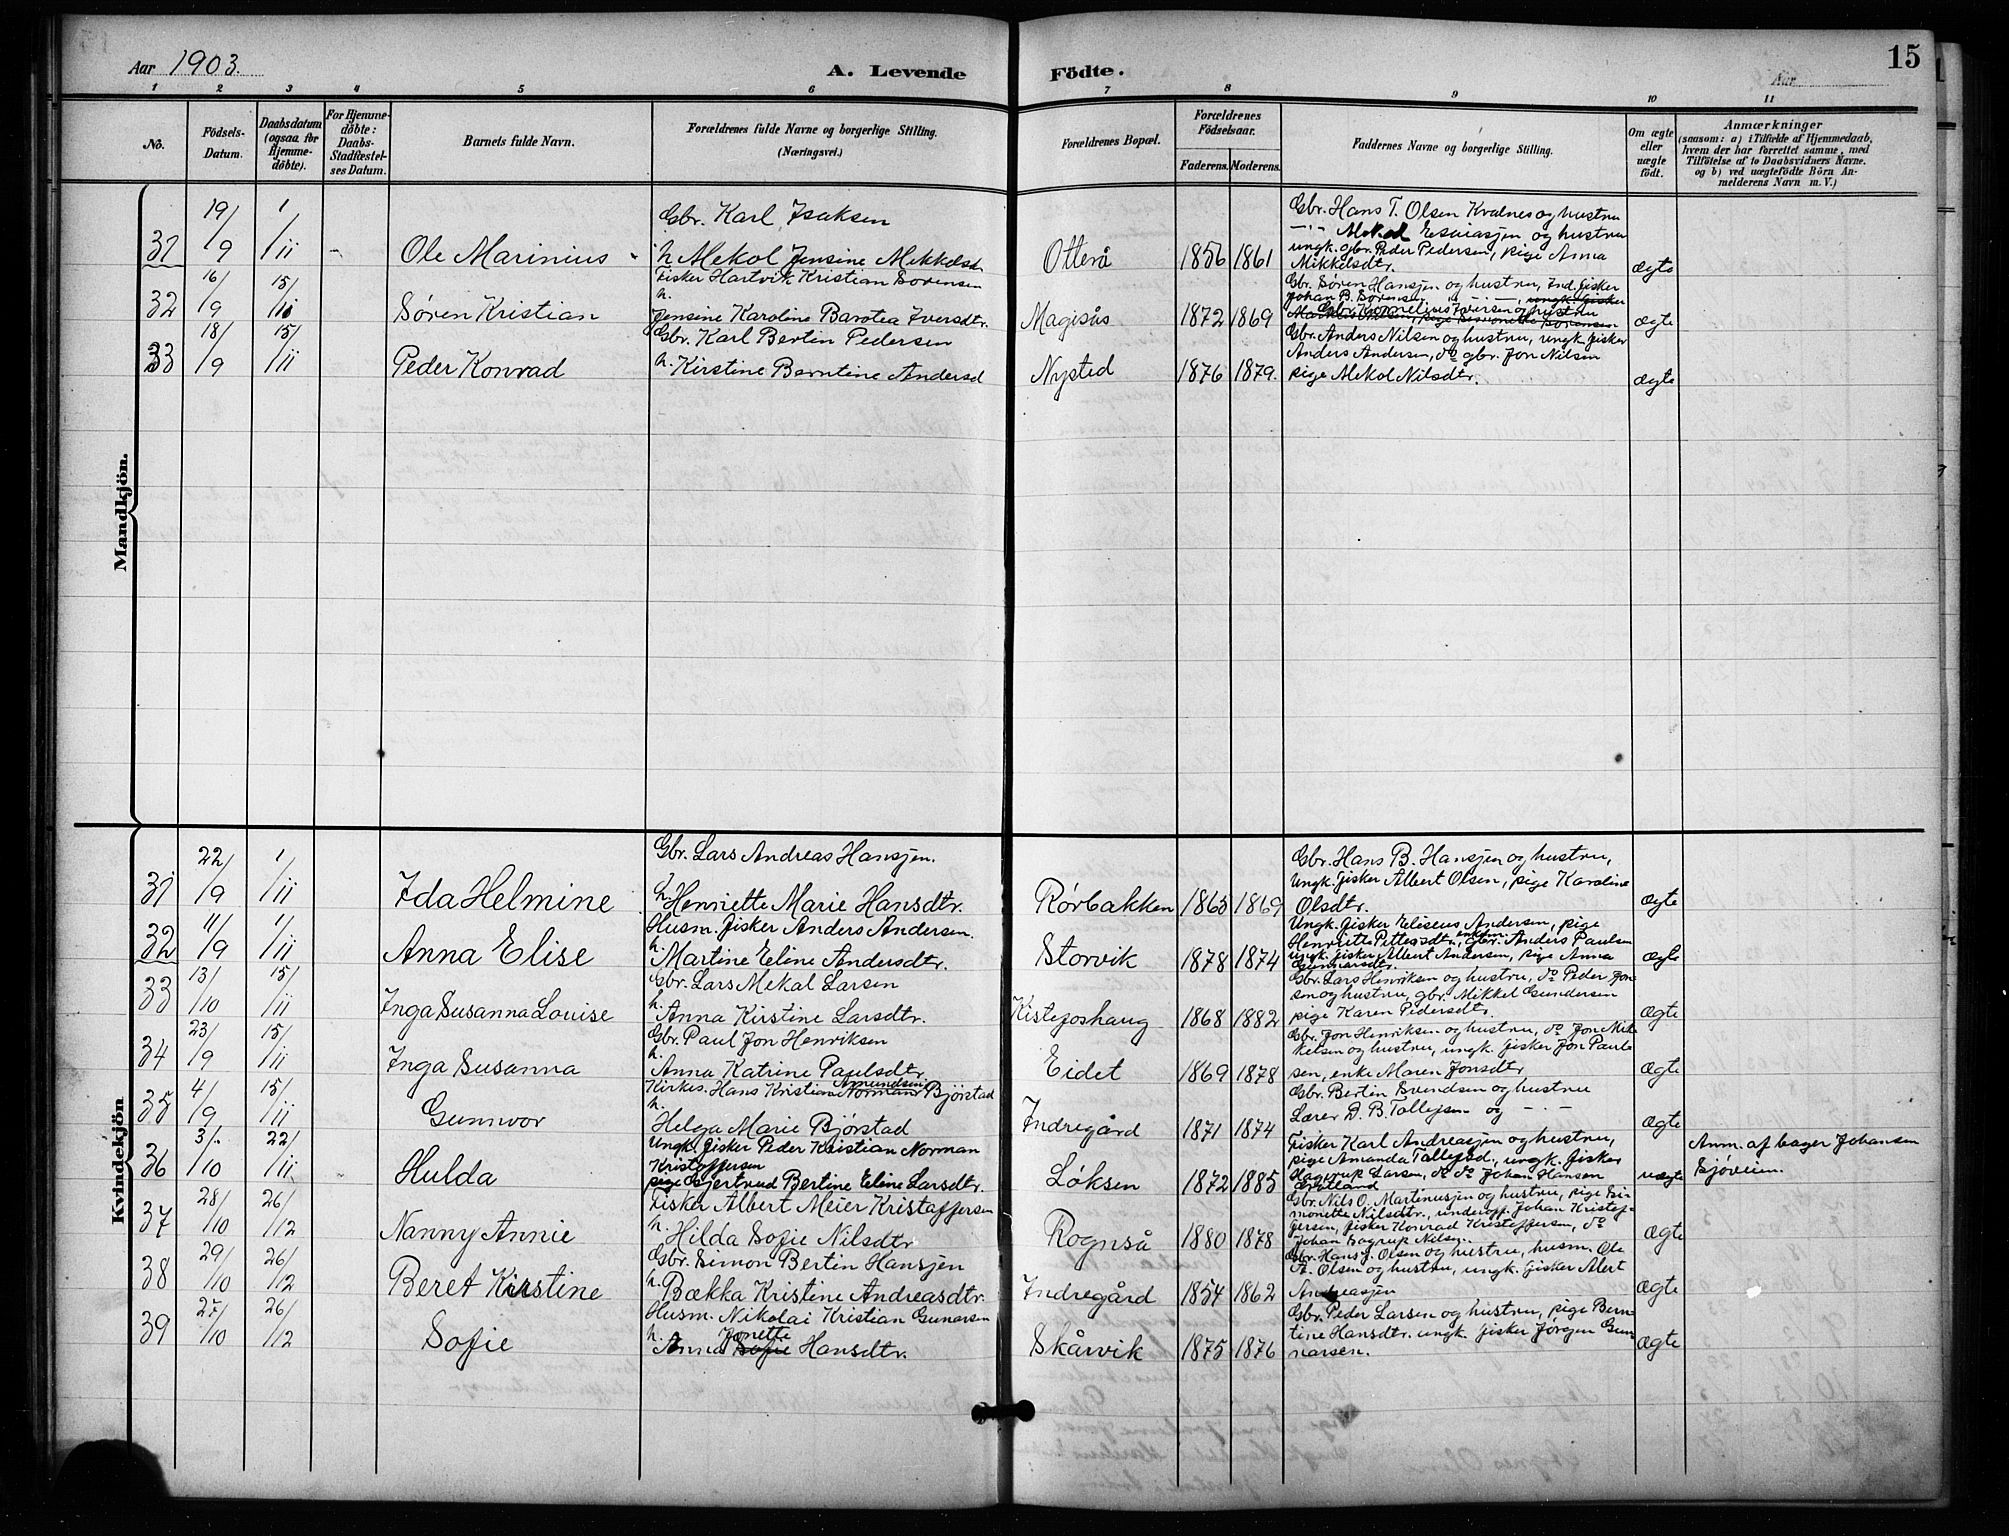 Aar 1903.
A. Levende Födte.
Aar
15
1 2 3 4 5 6 7 8 9 10 11
No.
Födsels-Datum.
Daabsdatum (ogsaa for Hjemme-döbte).
For Hjemme-döbte: Daabs-Stadfæstel-ses Datum.
Barnets fulde Navn.
Forældrenes fulde Navne og borgerlige Stilling. (Næringsvei.)
Forældrenes Bopæl.
Forældrenes Födselsaar.
Faderens. Moderens.
Faddernes Navne og borgerlige Stilling.
Om ægte eller uægte födt.
Anmærkninger
(saasom: a) i Tilfælde af Hjemmedaab,
hvem der har forrettet samme, med
Tilföielse af to Daabsvidners Navne.
og b) ved uægtefödte Börn An-
melderens Navn m. V.)
Mandkjön.
31 19/9 1/11 Ole Marinius
Gbr. Karl Isaksen
h. Mekol Jensine Mekkelsd
Otterå 1856 1861
Gbr. Hans T. Olsen Kvalnes og hustru
Esaiasjen og hustru
ungk. gbr. Peder Pedersen, pige Anna
Mikkelsdtr.
ægte
32 16/9 15/11 Søren Kristian
Fisker Hartvik Kristian Sørensen
h.
Jensine Karoline Barotea Iversdtr.
Magisås 1872 1869
Gbr. Søren Hansjen og hustru, Ind. fisker
Johan B. Sørensen
Gbr. Kornelius Iversen og hustru
ægte
33 18/9 15/11 Peder Konrad
Gbr. Karl Bertin Pedersen
h. Kirstine Berntine Andersd
Nysted 1876 1879.
Gbr. Anders Nilsen og hustru, ungk. fisker
Anders Andersen, do gbr. Jon Nilsen
pige Mekol Nilsdtr.
ægte
Kvindekjön
31 22/9 1/11 Ida Helmine
Gbr. Lars Andreas Hansjen.
h. Henriette Marie Hansdtr.
Rörbakken 1863 1869
Gbr. Hans B. Hansjen og hustru,
Ungk. fisker Albert Olsen, pige Karoline
Olsdtr.
ægte
32 11/9 1/11 Anna Elise
Husm. fisker Anders Andersen.
h. Martine Eline Andersdtr.
Storvik 1878 1874
Ungk. fisker Eliseus Andersen, pige
Henriette Pettersdtr., enkem. gbr. Anders Paulsen
ungk. fisker Albert Andersen, pige Anna
Gunnarsdtr.
ægte
33 13/10 15/11 Inga Susanna Louise
Gbr. Lars Mekal Larsen
h. Anna Kirstine Larsdtr.
Kistefoshaug 1868 1882
Gbr. Lars Henriksen og hustru, do Peder Jon-
sen og hustru, gbr. Mikkel Gundersen
pige Karen Pedersdtr.
ægte
34 23/9 15/11 Inga Susanna
Gbr. Paul Jon Henriksen
h. Anna Katrine Paulsdtr.
Eidet 1869 1878
Gbr. Jon Henriksen og hustru, do Jon Mik-
kelsen og hustru, ungk. fisker Jon Paul-
sen, enke Maren Jonsdtr.
ægte
35 4/9 15/11 Gunnvor
Kirkes. Hans Kristian Amundsen Normann Bjørstad
h.
Helga Marie Bjørstad
Indregård 1871 1874
Gbr. Bertin Svendsen og hustru
Lærer D. B. Tollefsen og - " -
ægte
36 3/10 22/11 Hulda
Ungk. fisker Peder Kristian Norman
Kristoffersen
pige Gjertrud Bertine Eline Larsdtr.
Løksen 1872 1885
Fisker Karl Andreasjen og hustru,
pige Amanda Tollefsd., ungk. fisker
Hagerup Larsen, do do Johan Hansen
uægte
Anm. af bager Johansen
Sjøveien.
37 28/10 26/12 Nanny Annie
Fisker Albert Meier Kristoffersen
h. Hilda Sofie Nilsdtr
Rognså 1880 1878
Gbr. Nils O. Martinusjen og hustru, pige Si-
monette Nilsdtr., underoff. Johan Kristof-
fersen, fisker Konrad Kristoffersen, do
Johan Hagrup Nilsen.
ægte
38 29/10 26/12 Beret Kirstine
Gbr. Simon Bertin Hansjen
h. Bækka Kristine Andreasdtr.
Indregård 1854 1862
Gbr. Hans J. Olsen og hustru, husm. Ole
A. Olsen og hustru, ungk. fisker Alert
Andreasjen
ægte
39 27/10 26/12 Sofie
Husm. Nikolai Kristian Gunarsen
h. Anna Jonette Sofie Hansdtr.
Skårvik 1875 1876
Gbr. Peder Larsen og hustru, pige Bern-
tine Hansdtr. ungk. fisker Jørgen Gun-
narsen.
ægte